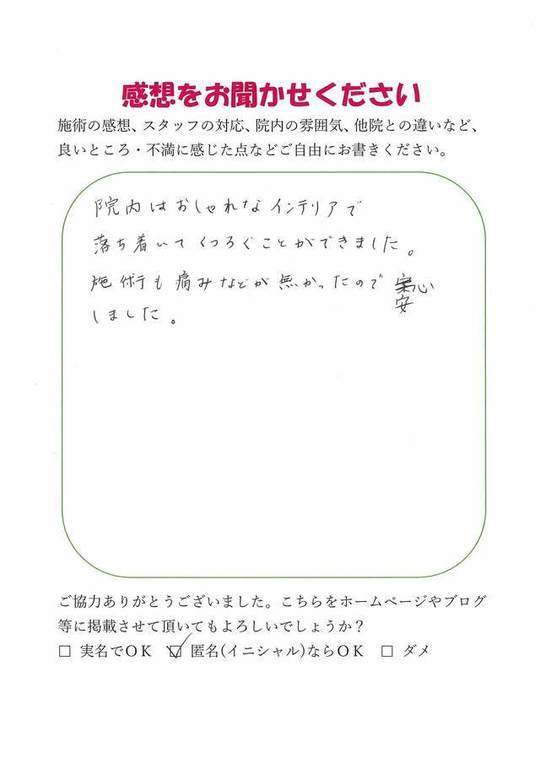 感想をお聞かせください
施術の感想、スタッフの対応、院内の雰囲気、他院との違いなど、
良いところ・不満に感じた点などご自由にお書きください。
院内はおしゃれなインテリアで
落ち着いてくつろぐことができました。
施術も痛みなどが無かったので安心
しました。
ご協力ありがとうございました。こちらをホームページやブログ
等に掲載させて頂いてもよろしいでしょうか？
□ 実名でOK ☑ 匿名(イニシャル)ならOK □ ダメ